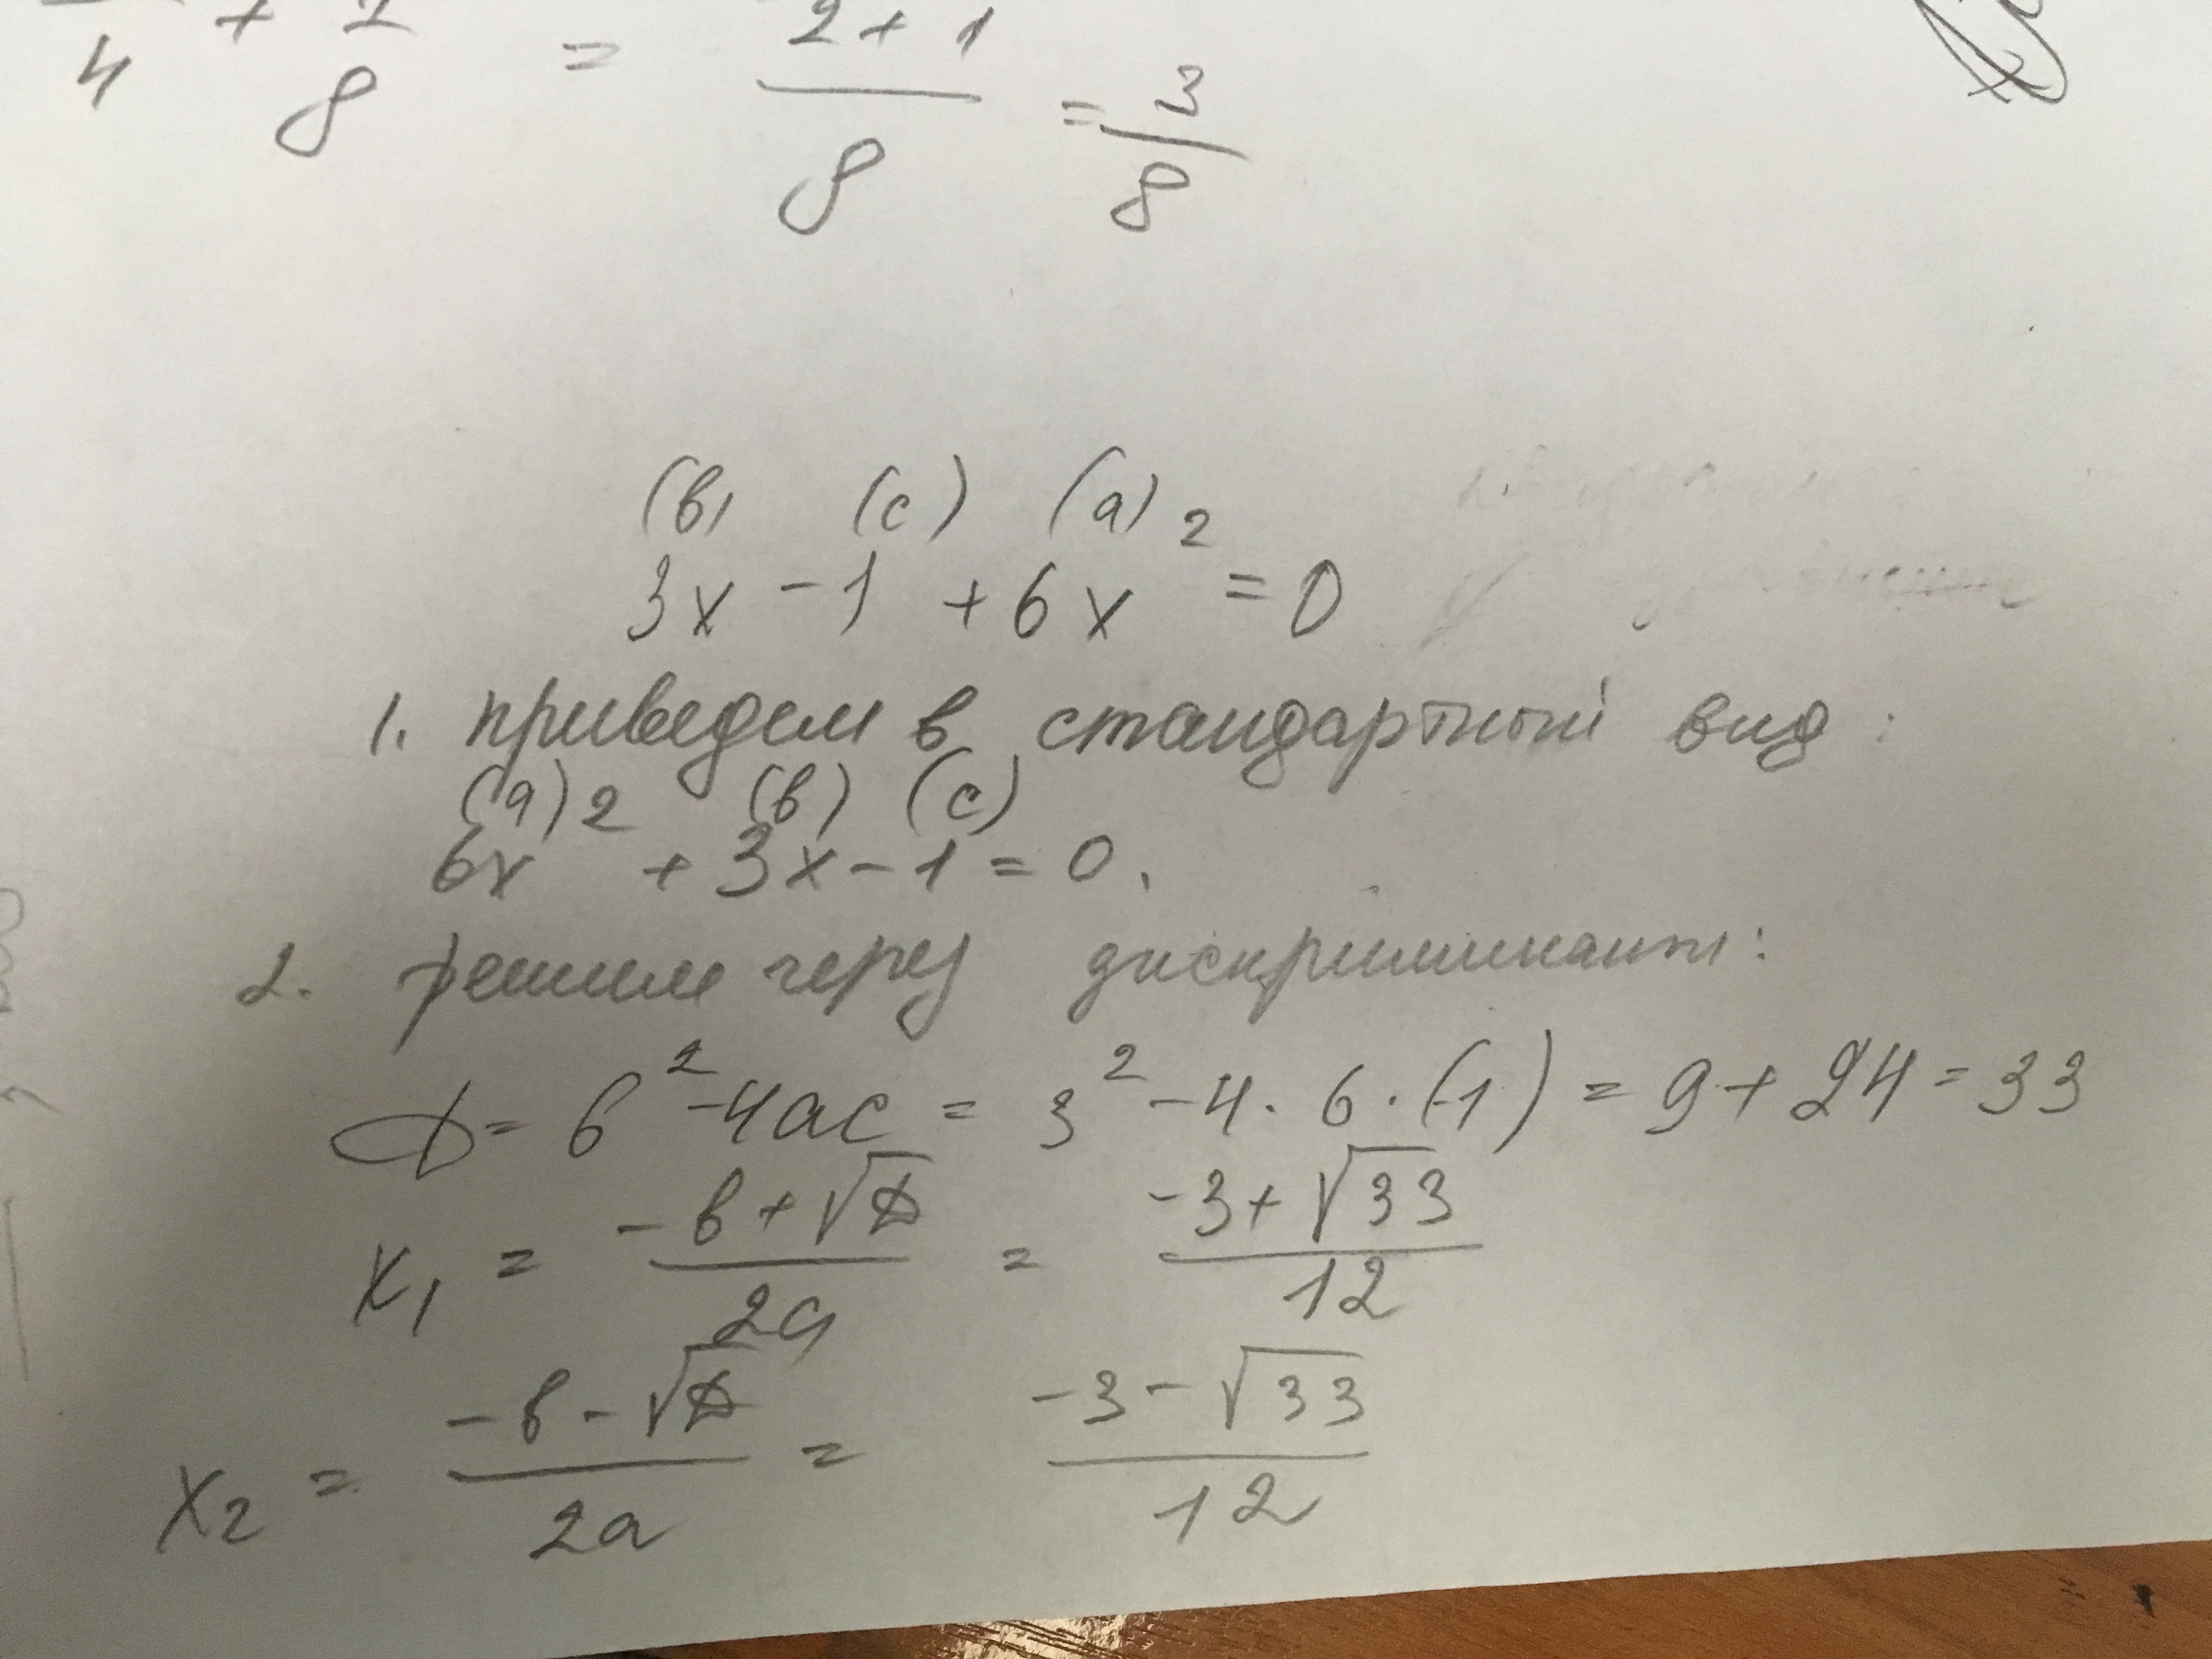 4 + 8 = 2 + 1 / 8 = 3 / 8
(в) (с) (а)
3x - 1 + 6x² = 0
1. приведем в стандартный вид:
(а) (в) (с)
6x² + 3x - 1 = 0.
2. решим через дискриминант:
D = b² - 4ac = 3² - 4 · 6 · (-1) = 9 + 24 = 33
x₁ = -b + √D / 2a = -3 + √33 / 12
x₂ = -b - √D / 2a = -3 - √33 / 12